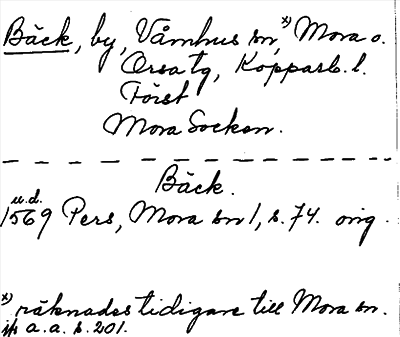 Bäck, by, Våmhus sn,ˣ⁾ Mora o.
Orsa tg, Kopparb. l.
Först
Mora Socken.
Bäck.
u.d.
1569 Pers, Mora sn 1, s. 74. orig.
x) räknades tidigare till Mora sn.
jfr a. a. s. 201.